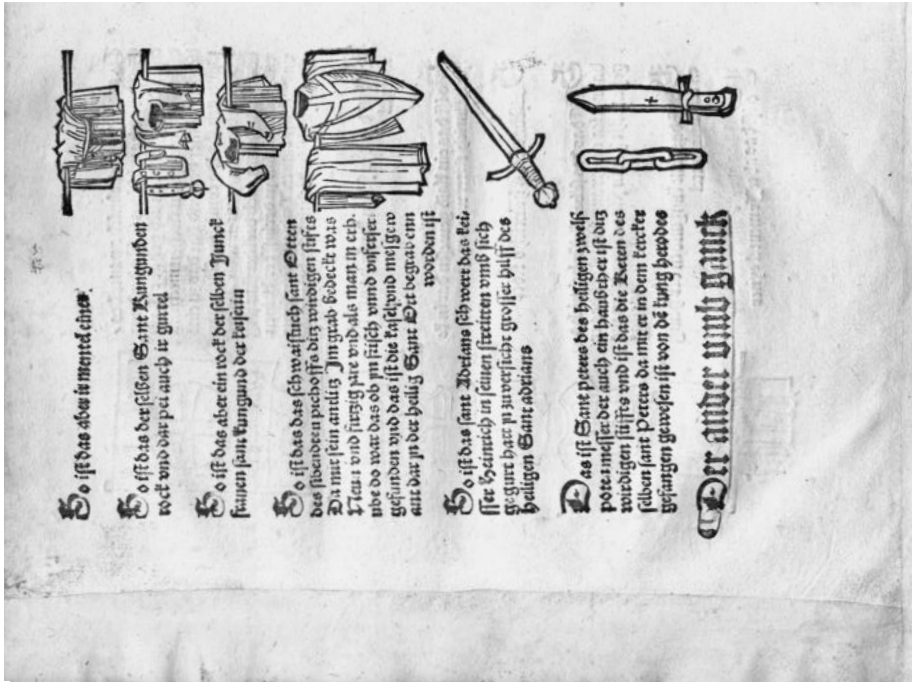 So ist das aber ir mentel einer
So ist das der selben Sant Kungunden
rock vnd dar pei auch ir gurtel
So ist das aber ein rock der selben Junck
frawen sant kungund der keiserin
So ist das das rasch punsfarb sant Otten
des sibenden pischoffs dis wirdigen stifts
Da mit sein antlitz Im grab gedeckt was
Newn vnd sirtzig iare vnd als man in erh
ube do was das als frisch vnnd vnferser
gefunden vnd das ist die kasel vnd mesgera
ate dar In der heilig Sant Ot begraben
worden ist
So ist das sant Adrians schwert das kei
ser Heinrich in seinen streiten vmb sich
gegurt hat zu zuuersicht grosser hilff des
heiligen Sant adrians
Das ist Sant peters des heiligen zwelf
poten messer der auch ein haugtber ist diez
wirdigen stiffts vnd ist das die keten des
selben sant peters da mit er in den karker
gefangen gewesen ist von dē kunig herodes
Der ander vmbgangk